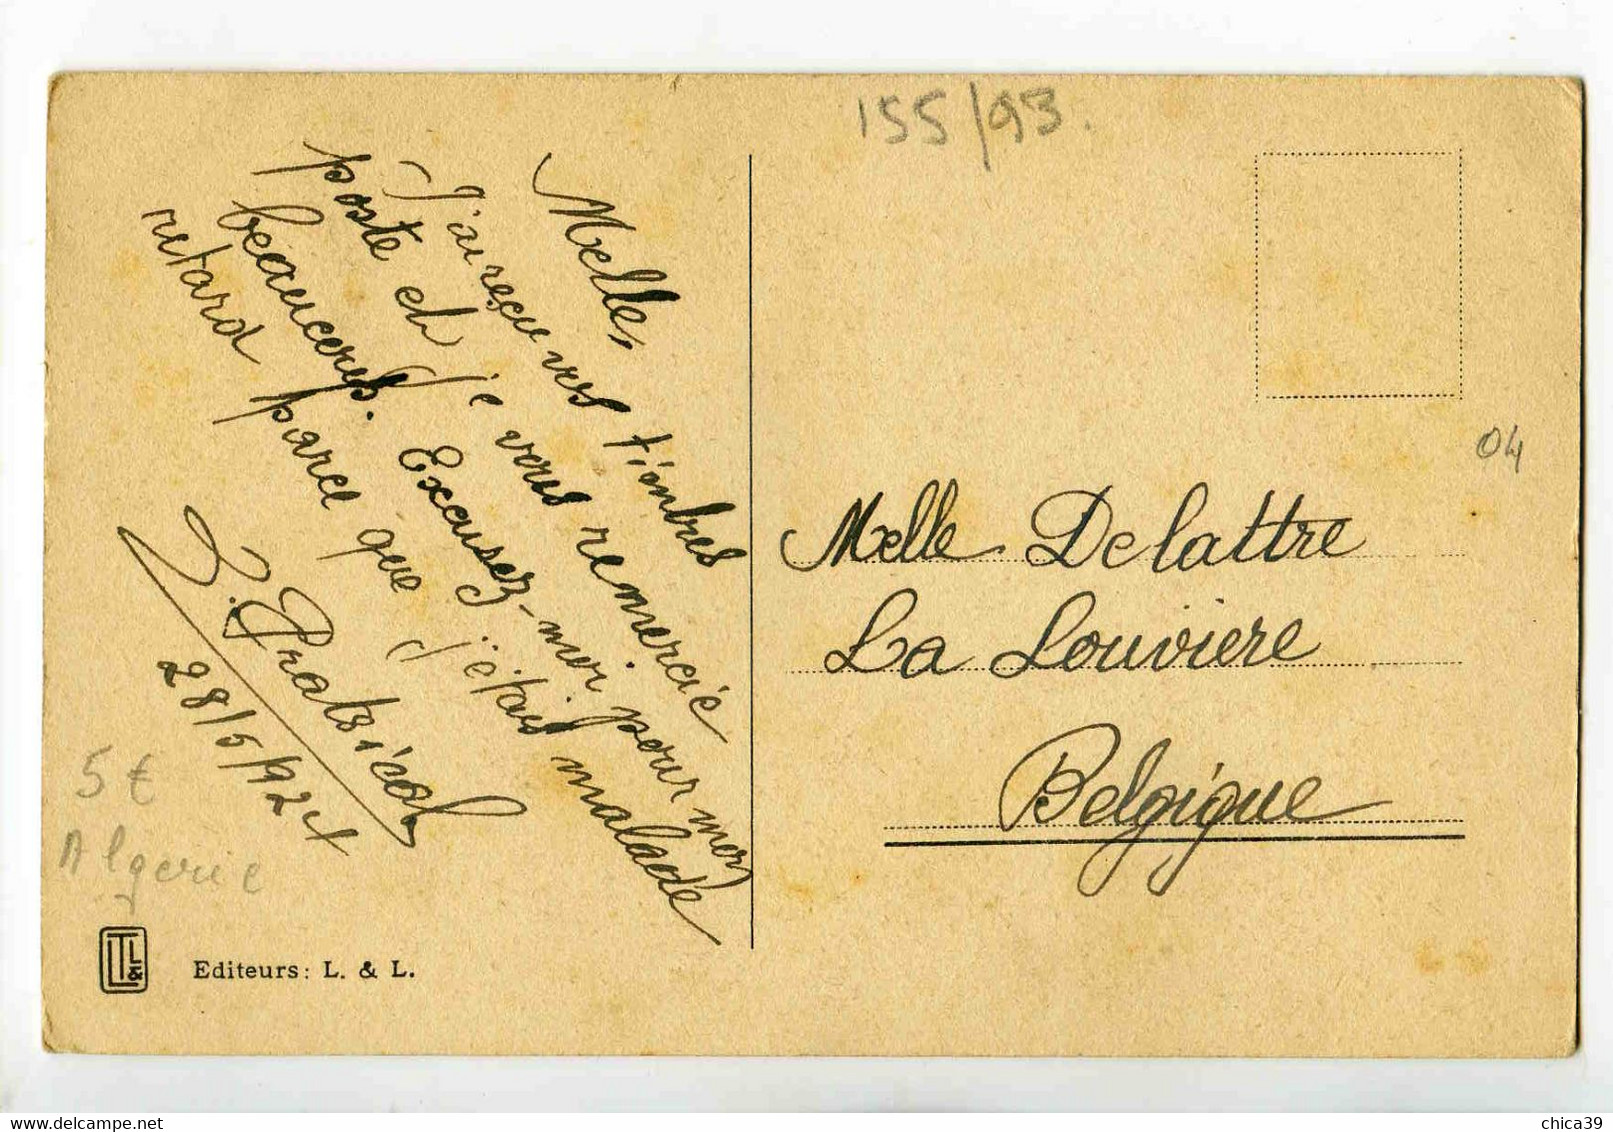 155/93.
04
Melle,
J'ai reçu vos timbres
poste et je vous remercie
beaucoup. Excusez-moi pour mon
retard parce que j'étais malade
28/5/1921
5 €
Algerie
Editeurs: L. & L.
Melle Delattre
La Louviere
Belgique
chica39